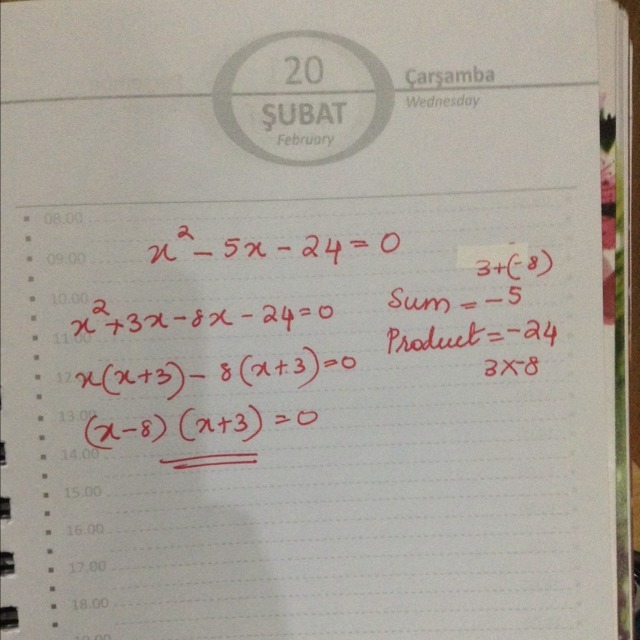 20
ŞUBAT
February
Çarşamba
Wednesday
08.00
09.00
x² - 5x - 24 = 0
3+(-8)
10.00
x² + 3x - 8x - 24 = 0
Sum = -5
11.00
Product = -24
12
x(x+3) - 8(x+3) = 0
3x-8
13.00
(x-8) (x+3) = 0
14.00
15.00
16.00
17.00
18.00
19.00